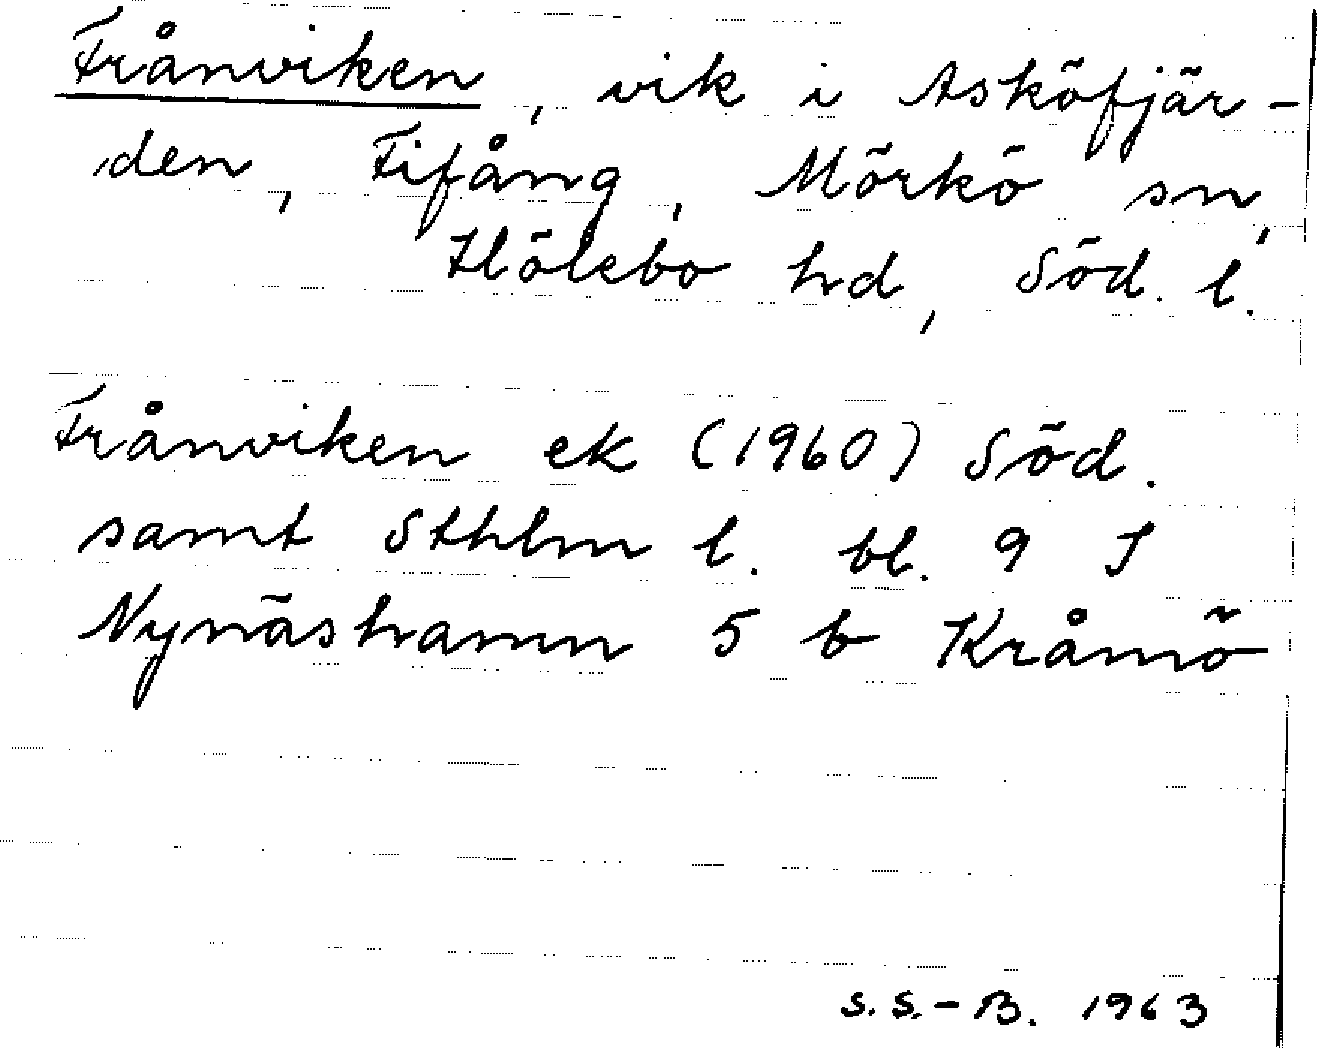 Frånviken, vik i Asköfjär-
den, Fifång, Mörkö sn,
Hölebo hd, Söd. l.
Frånviken ek (1960) Söd.
samt Sthlm l. bl. 9 I
Nynäshamn 5 b Kråmö
S. S.-B. 1963